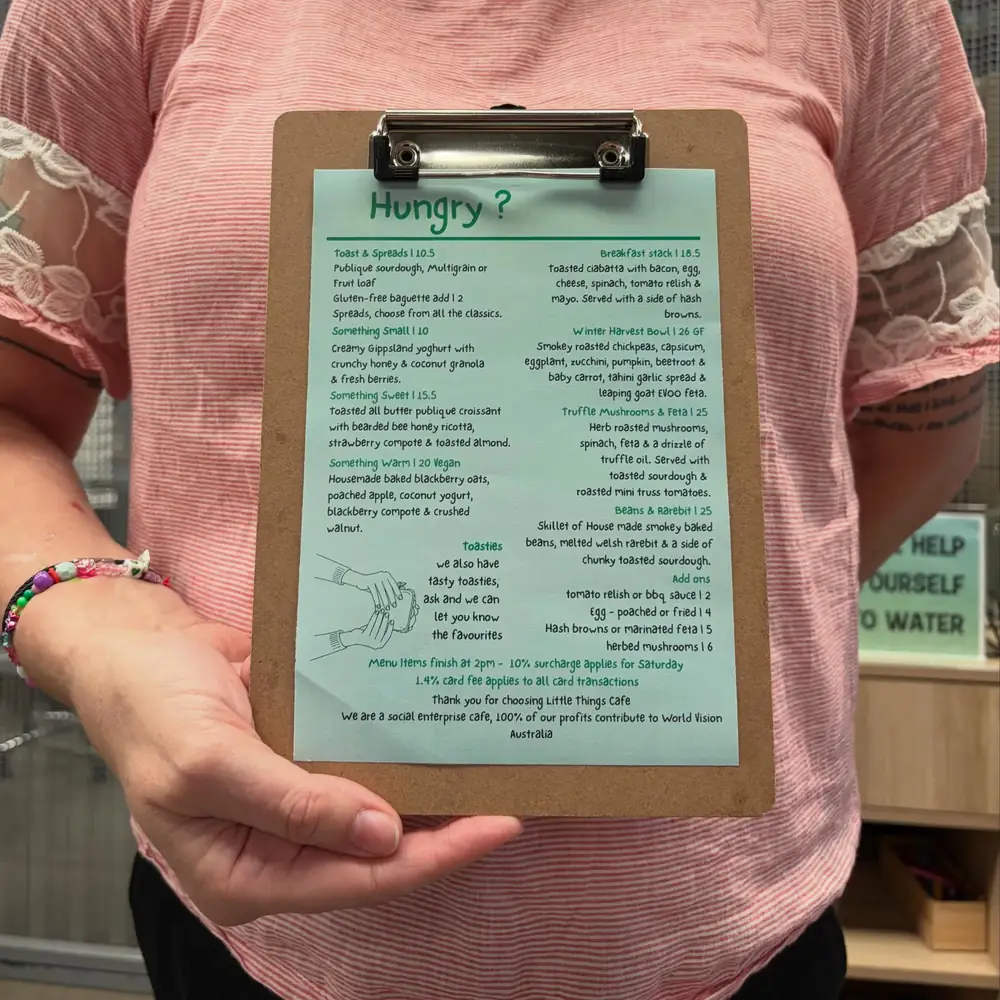 Hungry ?
Toast & Spreads | 10.5
Publique sourdough, Multigrain or
Fruit loaf
Gluten-free baguette add | 2
Spreads, choose from all the classics.
Something Small | 10
Creamy Gippsland yoghurt with
crunchy honey & coconut granola
& fresh berries.
Something Sweet | 15.5
Toasted all butter publique croissant
with bearded bee honey ricotta,
strawberry compote & toasted almond.
Something Warm | 20 Vegan
Housemade baked blackberry oats,
poached apple, coconut yogurt,
blackberry compote & crushed
walnut.
Toasties
we also have
tasty toasties,
ask and we can
let you know
the favourites
Breakfast stack | 18.5
Toasted ciabatta with bacon, egg,
cheese, spinach, tomato relish &
mayo. Served with a side of hash
browns.
Winter Harvest Bowl | 26 GF
Smokey roasted chickpeas, capsicum,
eggplant, zucchini, pumpkin, beetroot &
baby carrot, tahini garlic spread &
leaping goat EVOO feta.
Truffle Mushrooms & Feta | 25
Herb roasted mushrooms,
spinach, feta & a drizzle of
truffle oil. Served with
toasted sourdough &
roasted mini truss tomatoes.
Beans & Rarebit | 25
Skillet of House made smokey baked
beans, melted welsh rarebit & a side of
chunky toasted sourdough.
Add ons
tomato relish or bbq sauce | 2
Egg - poached or fried | 4
Hash browns or marinated feta | 5
herbed mushrooms | 6
Menu Items finish at 2pm - 10% surcharge applies for Saturday
1.4% card fee applies to all card transactions
Thank you for choosing Little Things Cafe
We are a social enterprise cafe, 100% of our profits contribute to World Vision
Australia
HELP
OURSELF
O WATER